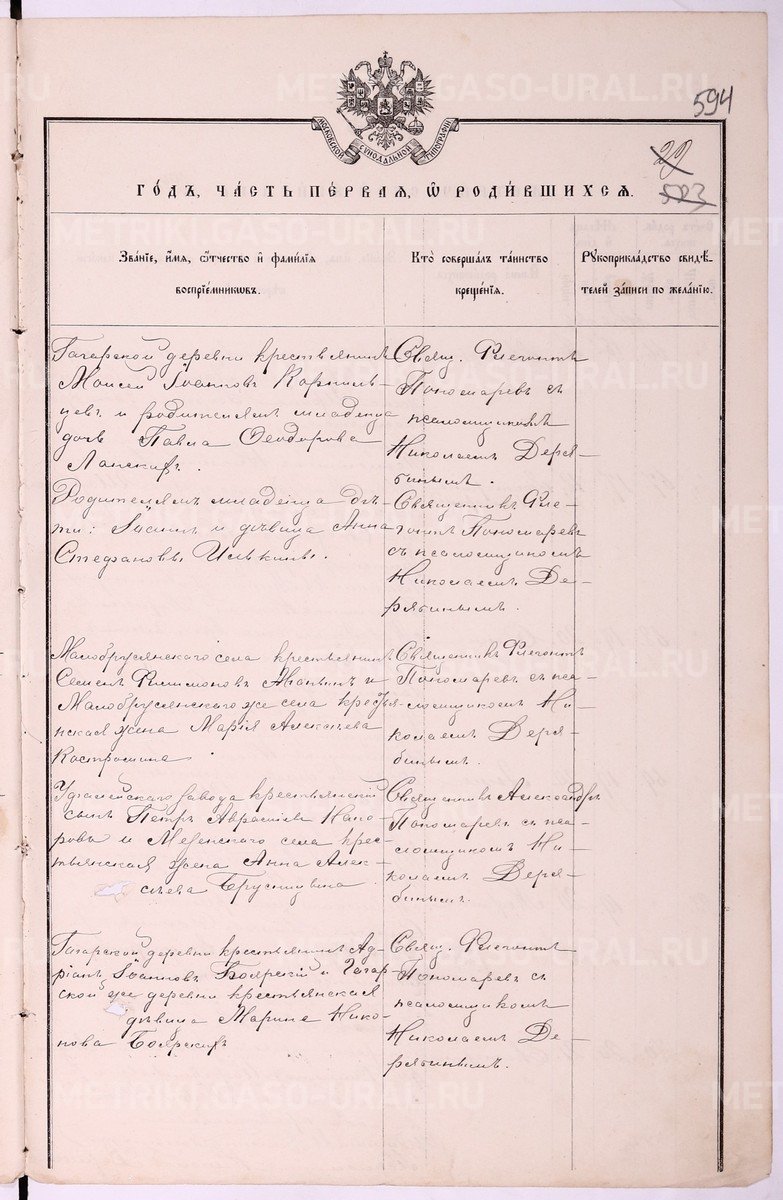 METRIKI.GASO-URAL.RU
594
МОСКОВСКОЙ СѴНОДАЛЬНОЙ ТИПОГРАФІИ
29
523
ГО́ДЪ, ЧА́СТЬ ПЕ́РВАЯ, Ѽ РОДИ́ВШИХСѦ.
Зва́нїе, и҆́мѧ, ѻ҆́тчество и҆ фами́лїѧ
воспрїе́мникѡвъ.
Кто̀ соверша́лъ та́инство
креще́нїѧ.
Рꙋкоприкла́дство свидѣ́-
телей за́писи по жела́нїю.
Гагарской деревни крестьянинъ
Моисей Іоанновъ Корниль-
цевъ и родителямъ младенца
дочь Павла Ѳеодорова
Ланскихъ.
Свящ. Флегонтъ
Пономаревъ съ
псаломщикомъ
Николаемъ Деря-
бинымъ.
Родителямъ младенца дѣ-
ти: Іоаннъ и дѣвица Анна
Стефановы Илькины.
Священникъ Фле-
гонтъ Пономаревъ
съ псаломщикомъ
Николаемъ Де-
рябинымъ.
Малобрусянскаго села крестьянинъ
Семенъ Филимоновъ и
Малобрусянскаго же села крестья-
нская жена Марія Алексѣева
Костромина
Священникъ Флегонтъ
Пономаревъ съ пса-
ломщикомъ Ни-
колаемъ Деря-
бинымъ.
Уфалейскаго завода крестьянскій
сынъ Петръ
и Мезенскаго села крес-
тьянская жена Анна Алек-
сѣева Брусницына
Священникъ Александръ
Пономаревъ съ пса-
ломщикомъ Ни-
колаемъ Деря-
бинымъ.
Гагарской деревни крестьянинъ Ад-
ріанъ Іоанновъ Боярскій и Гагар-
ской же деревни крестьянская
дѣвица Марина Нико-
нова Боярскихъ
Свящ. Флегонтъ
Пономаревъ съ
псаломщикомъ
Николаемъ Де-
рябинымъ.